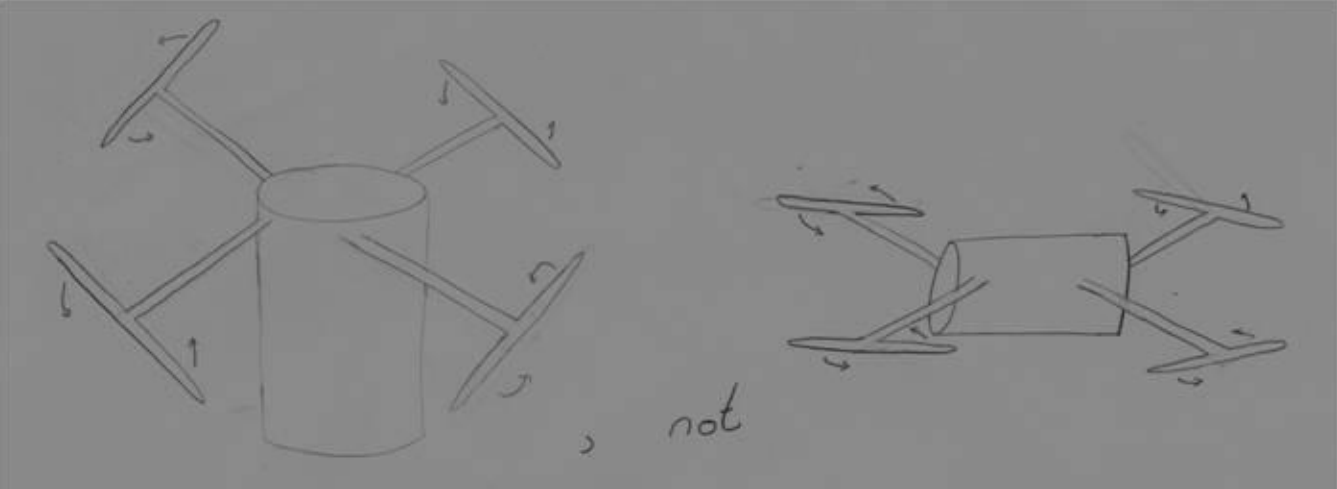 , not